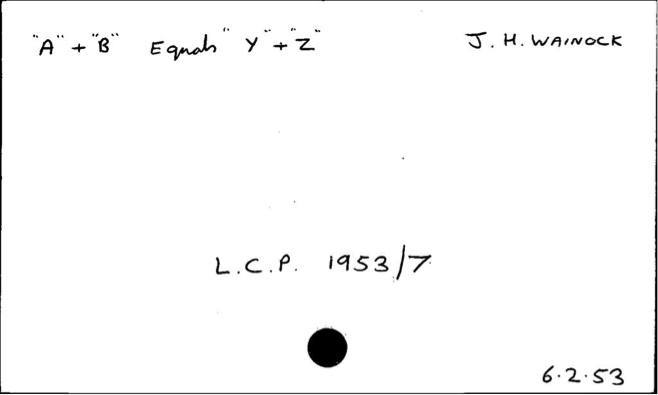 "A" + "B" Equals "Y" + "Z" J. H. WAINOCK
L.C.P. 1953/7
6.2.53